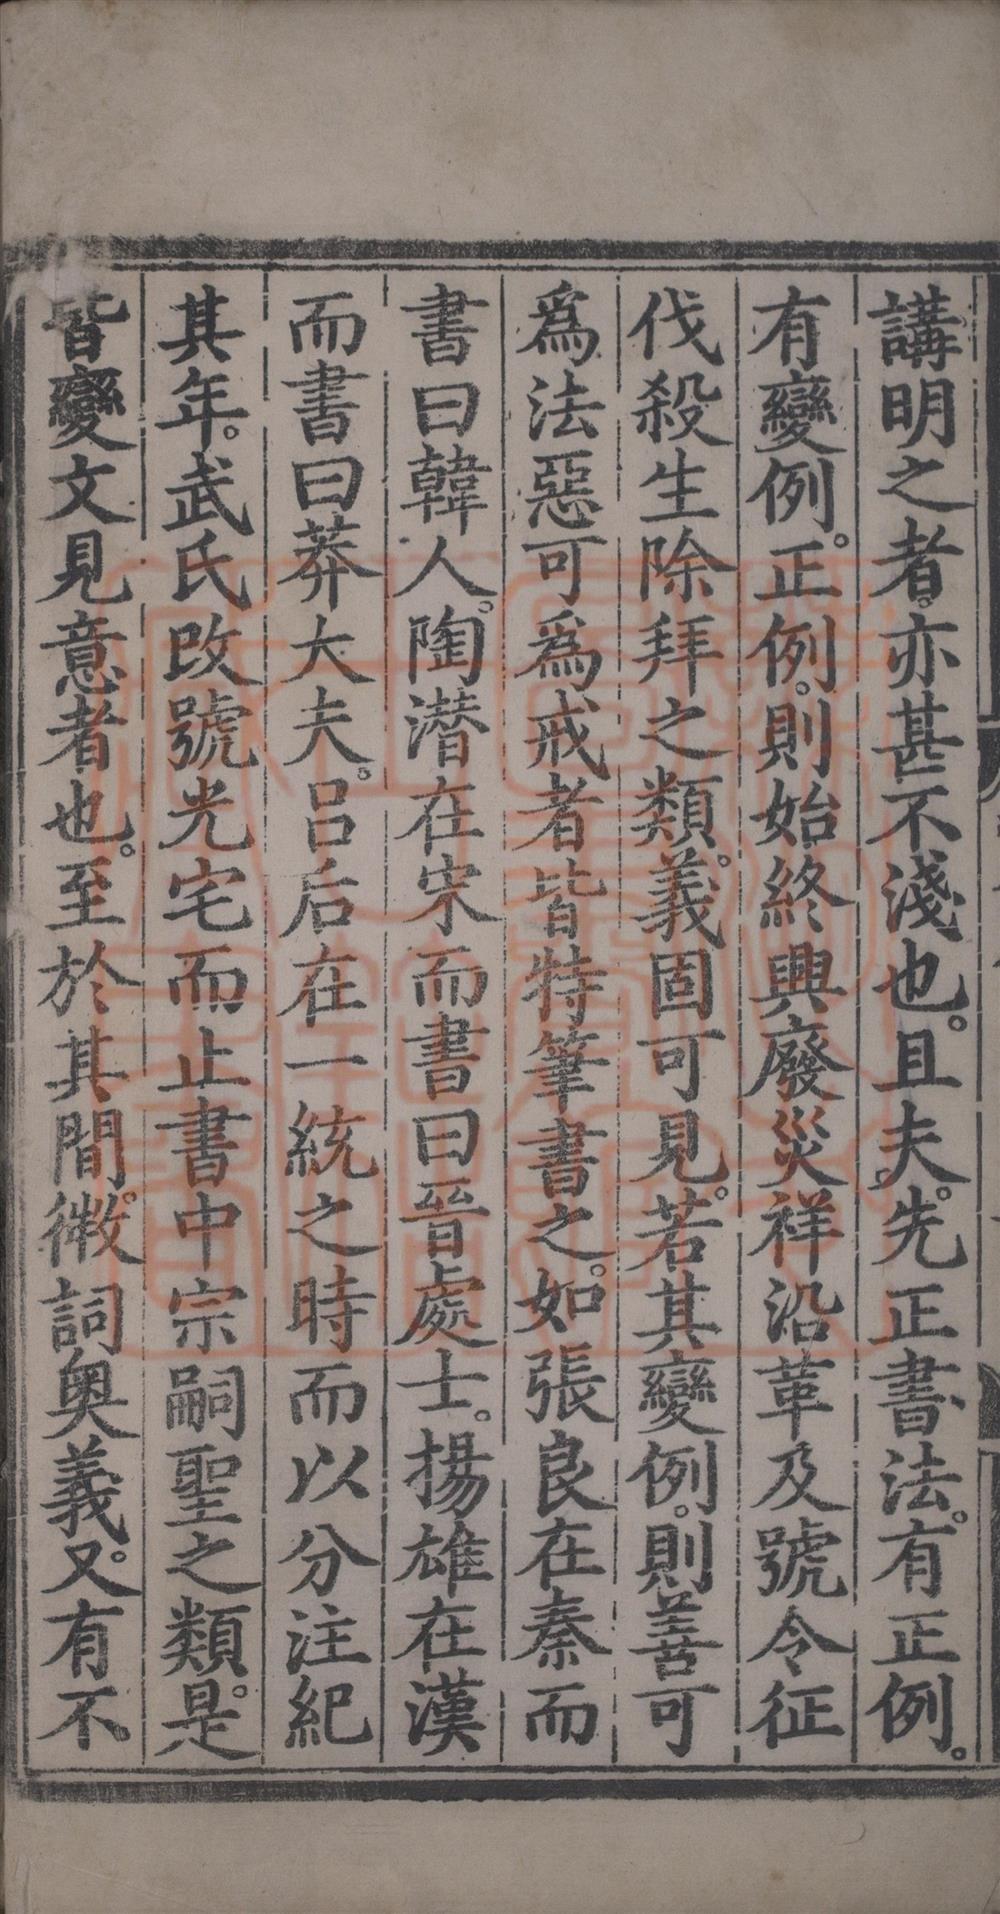 講明之者。亦甚不淺也。且夫。先正書法。有正例。
有變例。正例。則始終興廢災祥沿革及號令征
伐殺生除拜之類。義固可見。若其變例。則善可
爲法惡可爲戒者皆特筆書之。如張良在秦而
書曰韓人。陶潛在宋而書曰晉處士。揚雄在漢
而書曰莽大夫。呂后在一統之時而以分注紀
其年。武氏改號光宅而止書中宗嗣聖之類。是
皆變文見意者也。至於其間。微詞奧義。又有不